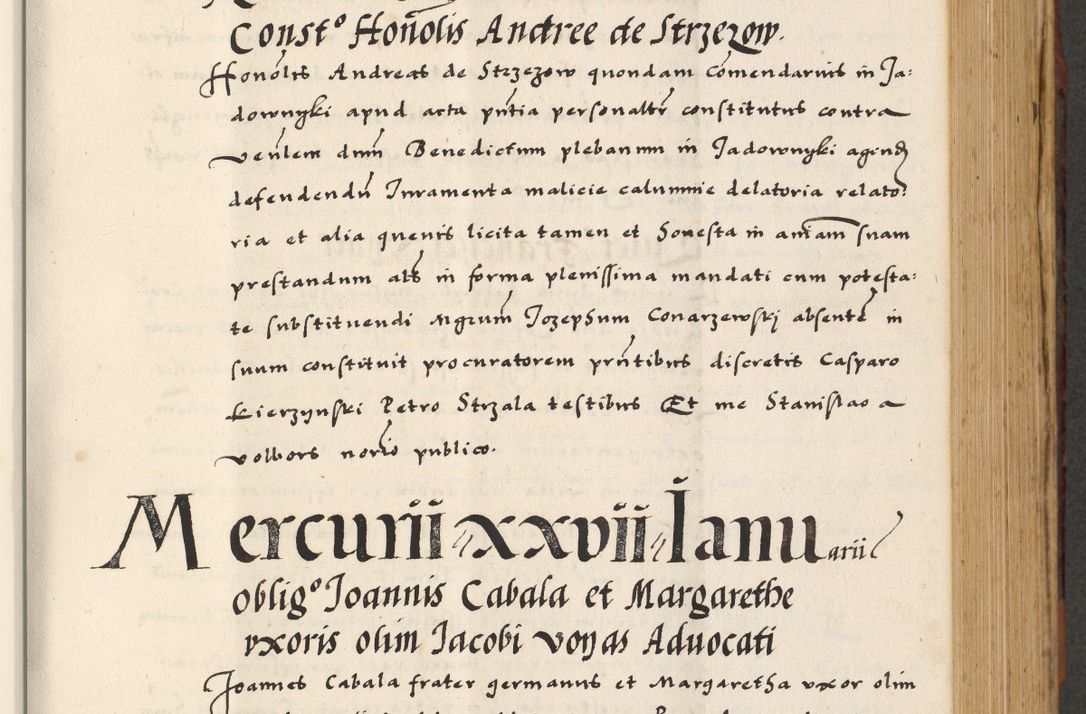 Constº Honołis Andree de Strzezow.
Honołis Andreas de Strzezow quondam comendarius in Ja:
downyki apud acta pntia personaltr constitutus contra
venlem dnm Benedictum plebanum in Jadownyki agend
defendendu Iuramenta malicie calumnie delatoria relato:
ria et alia quevis licita tamen et honesta in aniam suam
prestandum als in forma plenissima mandati cum potesta:
te substituendi Mgrum Iozephum Conarzewskj absente in
suum constituit procuratorem pntibus discretis Casparo
Kierzynski Petro Strzala testibus Et me Stanislao a
volbors norio publico.
Mercurii xxvii Ianuarii
obligº Joannis Cabala et Margarethe
vxoris olim Iacobi voyas Aduocati
Joannes Cabala frater germanus et Margaretha vxor olim